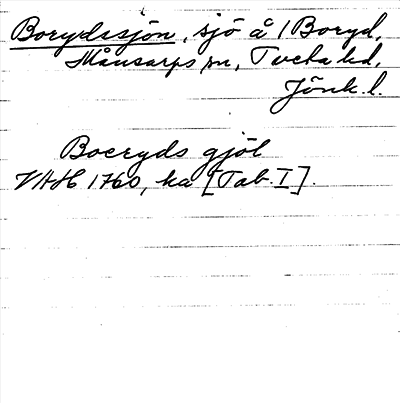 Borydssjön, sjö å 1 Boryd,
Månsarps sn, Tveta hd,
Jönk. l.
Boeryds gjöl
VAH 1760, ka [Tab. I].